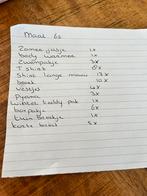 Maat 62
Zomer jasje 1x
body warmer 1x
Zwempakje 3x
T shirt 8x
Shirt lange mouw 13x
broek 10x
vestjes 4x
Pyama 3x
winter teddy pak 1x
boxpakje 6x
korte broek 5x